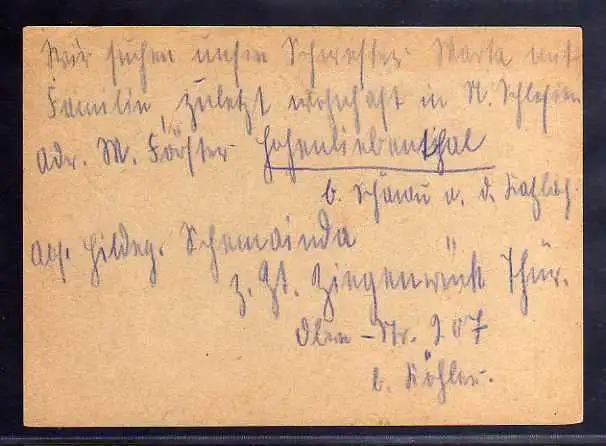 Wir suchen unsere Schwester Marta mit
Familie, zuletzt wohnhaft in N. Schlesien
Adr. M. Förster Hohenliebenthal
b. Schönau a. d. Katzbach.
Abs. Hildeg. Schemainda
z. Zt. Ziegenrück Thür.
Nr. 207
b. Köhler.